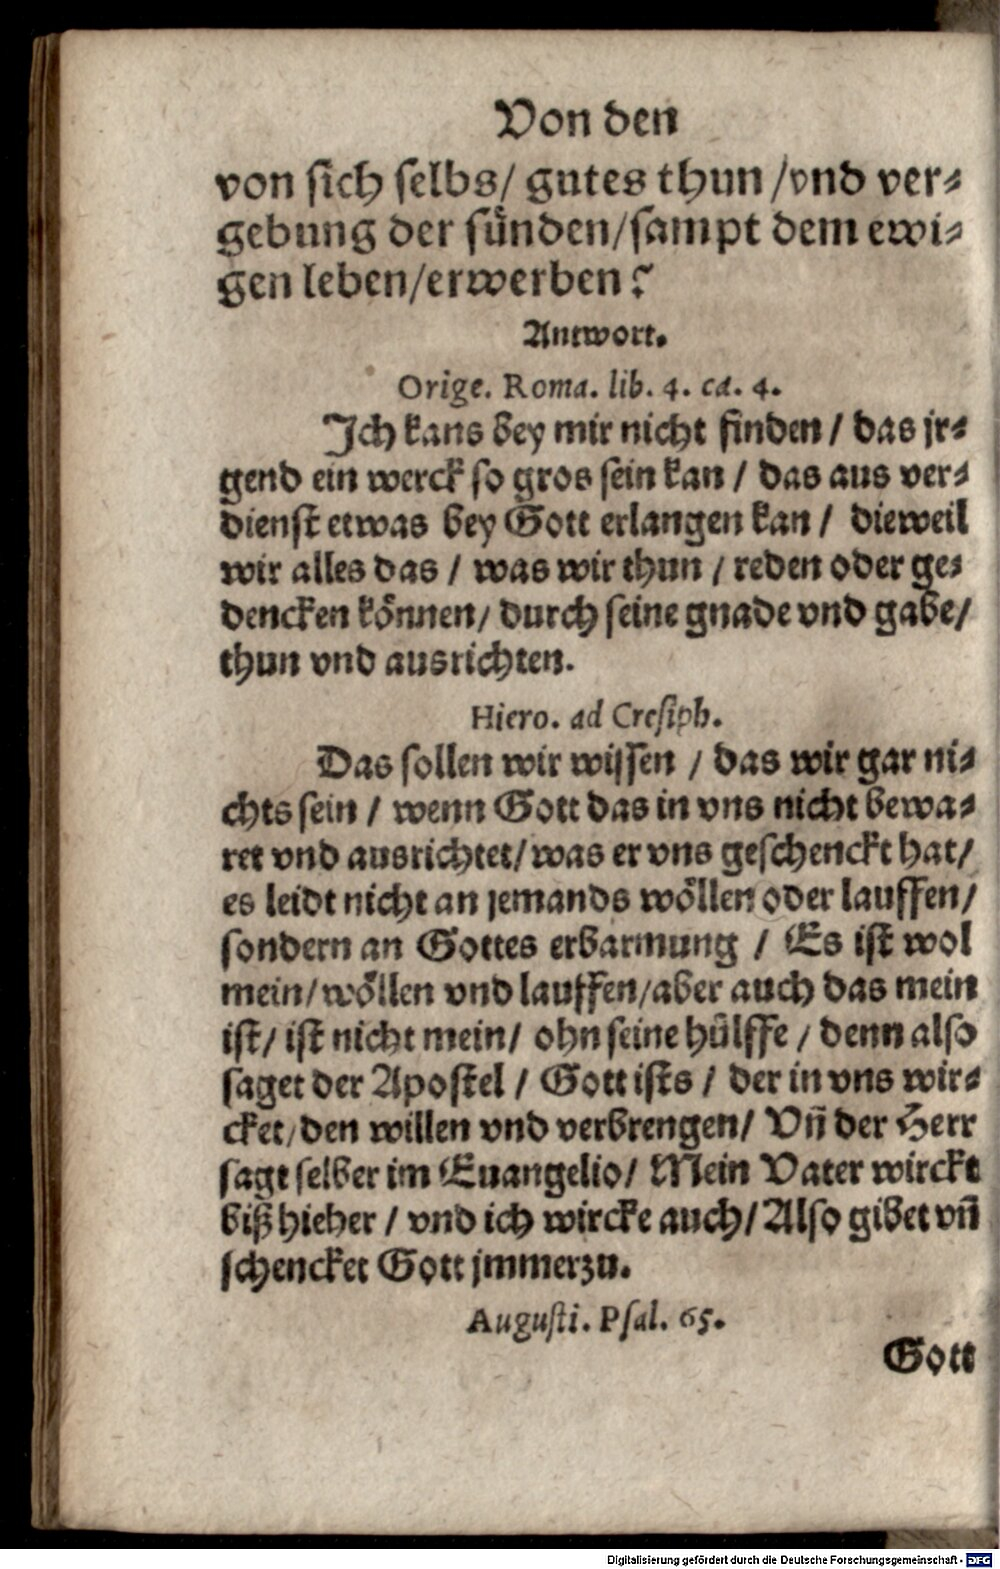 Von den
von sich selbs/ gutes thun /vnd ver⸗
gebung der sünden/sampt dem ewi⸗
gen leben/erwerben?
Antwort.
Orige. Roma. lib. 4. ca. 4.
Ich kans bey mir nicht finden / das jr⸗
gend ein werck so gros sein kan / das aus ver⸗
dienst etwas bey Gott erlangen kan / dieweil
wir alles das / was wir thun / reden oder ge⸗
dencken können/ durch seine gnade vnd gabe/
thun vnd ausrichten.
Hiero. ad Cresiph.
Das sollen wir wissen / das wir gar ni⸗
chts sein / wenn Gott das in vns nicht bewa⸗
ret vnd ausrichtet/ was er vns geschenckt hat/
es leidt nicht an jemands wöllen oder lauffen/
sondern an Gottes erbarmung / Es ist wol
mein/wöllen vnd lauffen/aber auch das mein
ist/ ist nicht mein/ ohn seine hülffe / denn also
saget der Apostel / Gott ists / der in vns wir⸗
cket/den willen vnd verbrengen/ Vñ der Herr
sagt selber im Euangelio/ Mein Vater wirckt
biß hieher / vnd ich wircke auch/ Also gibet vñ
schencket Gott jmmerzu.
Augusti. Psal. 65.
Gott
Digitalisierung gefördert durch die Deutsche Forschungsgemeinschaft - DFG